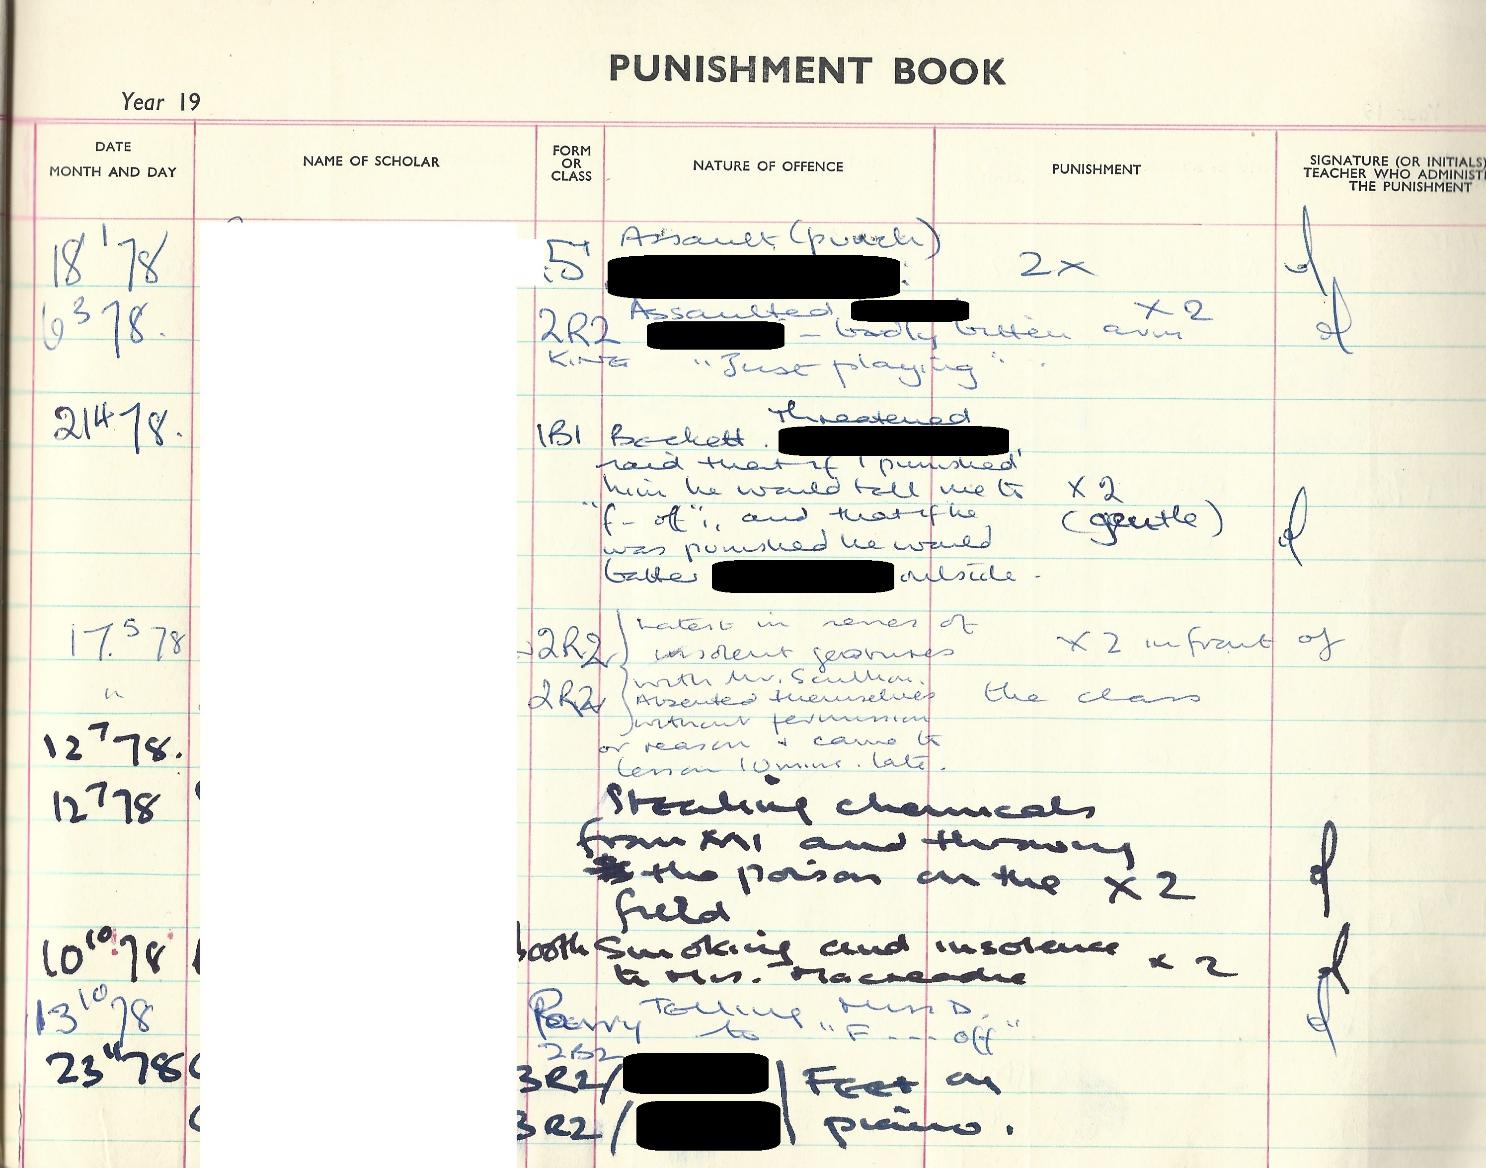 PUNISHMENT BOOK
Year 19
DATE
MONTH AND DAY
NAME OF SCHOLAR
FORM
OR
CLASS
NATURE OF OFFENCE
PUNISHMENT
SIGNATURE (OR INITIALS)
TEACHER WHO ADMINIST
THE PUNISHMENT
18 1 78 5 Assault (punch) 2x
6 3 78. 2R2 Assaulted x 2
KING – badly bitten arm
"Just playing".
21 4 78. 1B1 Beckett. Threatened
said that if I punished
him he would tell me to x 2
"f – off", and that if he (gentle)
was punished he would
batter outside.
17. 5 78 2R2 Latest in series of x 2 in front of
insolent gestures
with Mr.
" 2R2 Absented themselves the class
without permission
or reason & came to
lesson 10 mins. late.
12 7 78.
12 7 78 Stealing chemicals
from and throwing
the poison on the x 2
field
10 10 78 both Smoking and insolence x 2
to Mrs. Macreadie
13 10 78 Barry Telling Miss D.
to "F --- off"
2B2
23 11 78 3R2/ Feet on
3R2/ piano.